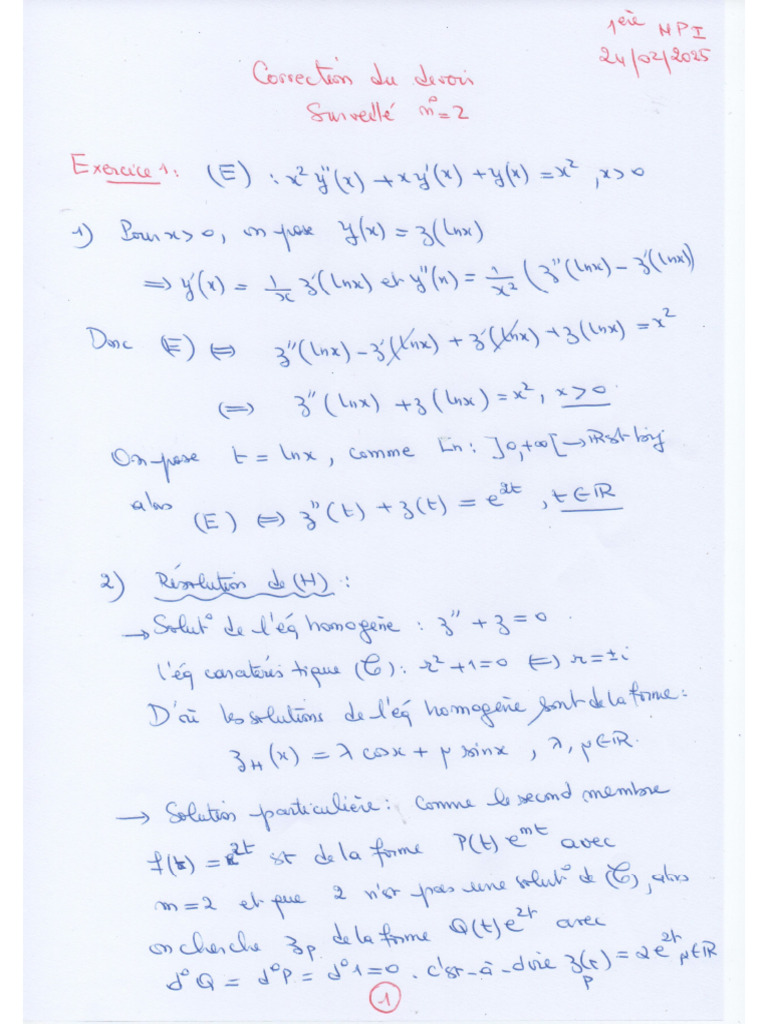 1ère MPI
24/02/2025
Correction du devoir
Surveillé n°=2
Exercice 1: (E) : x² y''(x) + x y'(x) + y(x) = x² , x>0
1) Pour x>0, on pose y(x) = z(lnx)
⟹ y'(x) = 1/x z'(lnx) et y''(x) = 1/x² (z''(lnx) - z'(lnx))
Donc (E) ⟺ z''(lnx) - z'(lnx) + z'(lnx) + z(lnx) = x²
⟺ z''(lnx) + z(lnx) = x², x>0.
On pose t = lnx , comme Ln : ]0,+∞[ → ℝ est bij
alors (E) ⟺ z''(t) + z(t) = e^{2t} , t∈ℝ
2) Résolution de (H) :
→ Solut° de l'éq homogène : z'' + z = 0.
l'éq caratéristique (C) : r² + 1 = 0 ⟺ r = ±i
D'où les solutions de l'éq homogène sont de la forme :
z_H(x) = λ cosx + μ sinx , λ, μ∈ℝ.
→ Solution particulière : comme le second membre
f(t) = e^{2t} est de la forme P(t) e^{mt} avec
m=2 et que 2 n'est pas une solut° de (C), alors
on cherche z_p de la forme Q(t) e^{2t} avec
d°Q = d°P = d°1 = 0. c'est-à-dire z_p(t) = α e^{2t} μ∈ℝ
1